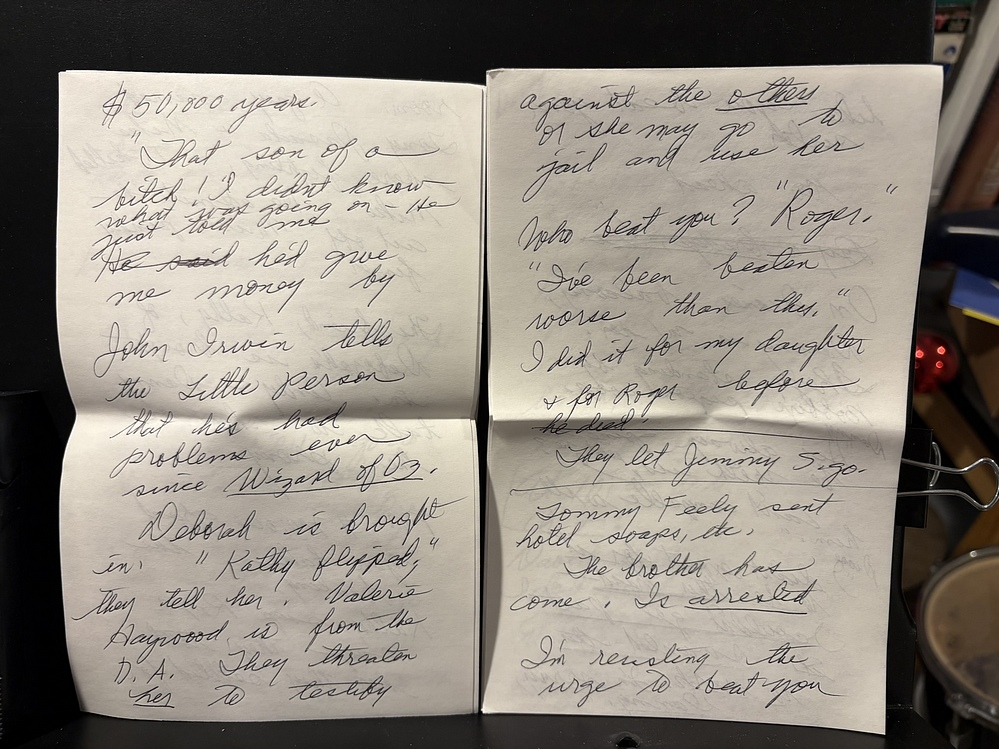 $50,000 years.
"That son of a
bitch! I didn't know
what was going on - He
just told me
He said he'd give
me money by
John Irwin tells
the Little Person
that he's had
problems ever
since Wizard of Oz.
Deborah is brought
in. "Kathy flipped,"
they tell her. Valerie
Haywood is from the
D.A. They threaten
her to testify
against the others
or she may go to
jail and use her
Who beat you? "Roger."
"I've been beaten
worse than this."
I did it for my daughter
& for Roger before
he died.
They let Jimmy S. go.
Tommy Feely sent
hotel soaps, etc.
The brother has
come. Is arrested
I'm resisting the
urge to beat you